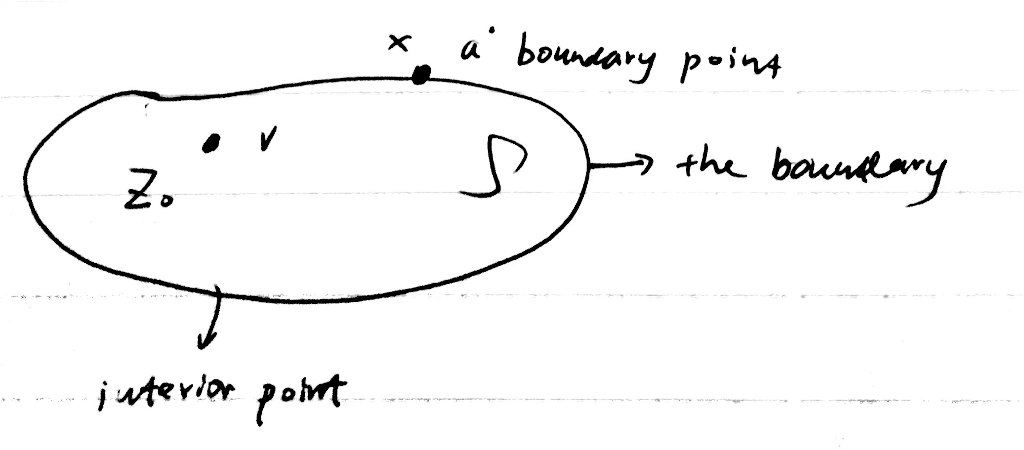 x a boundary point
v
Z₀ S
the boundary
interior point